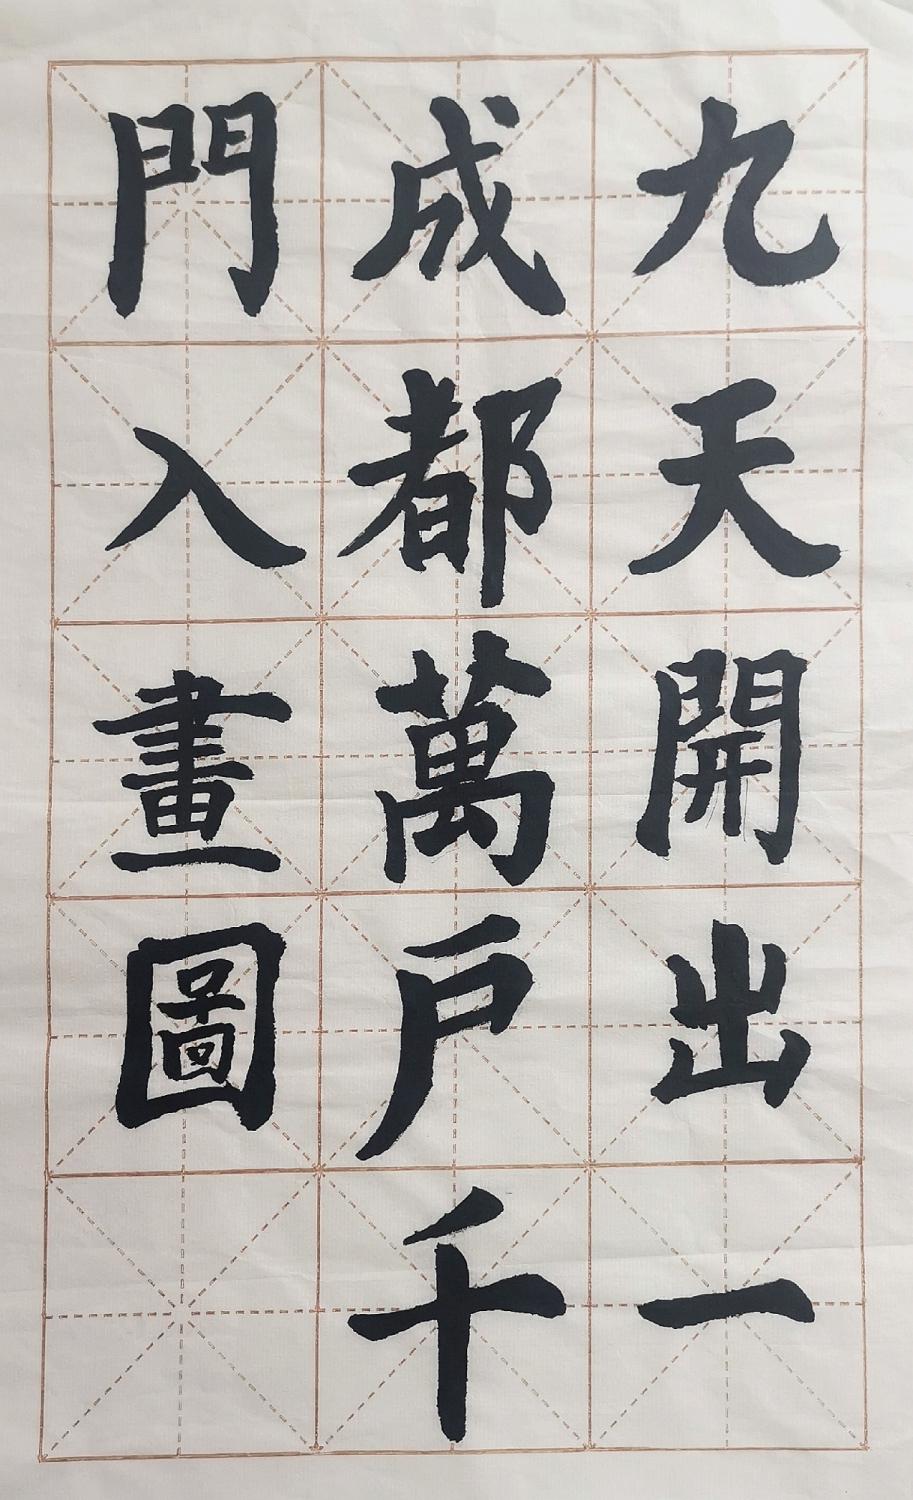 九天開出一
成都萬户千
門入畫圖